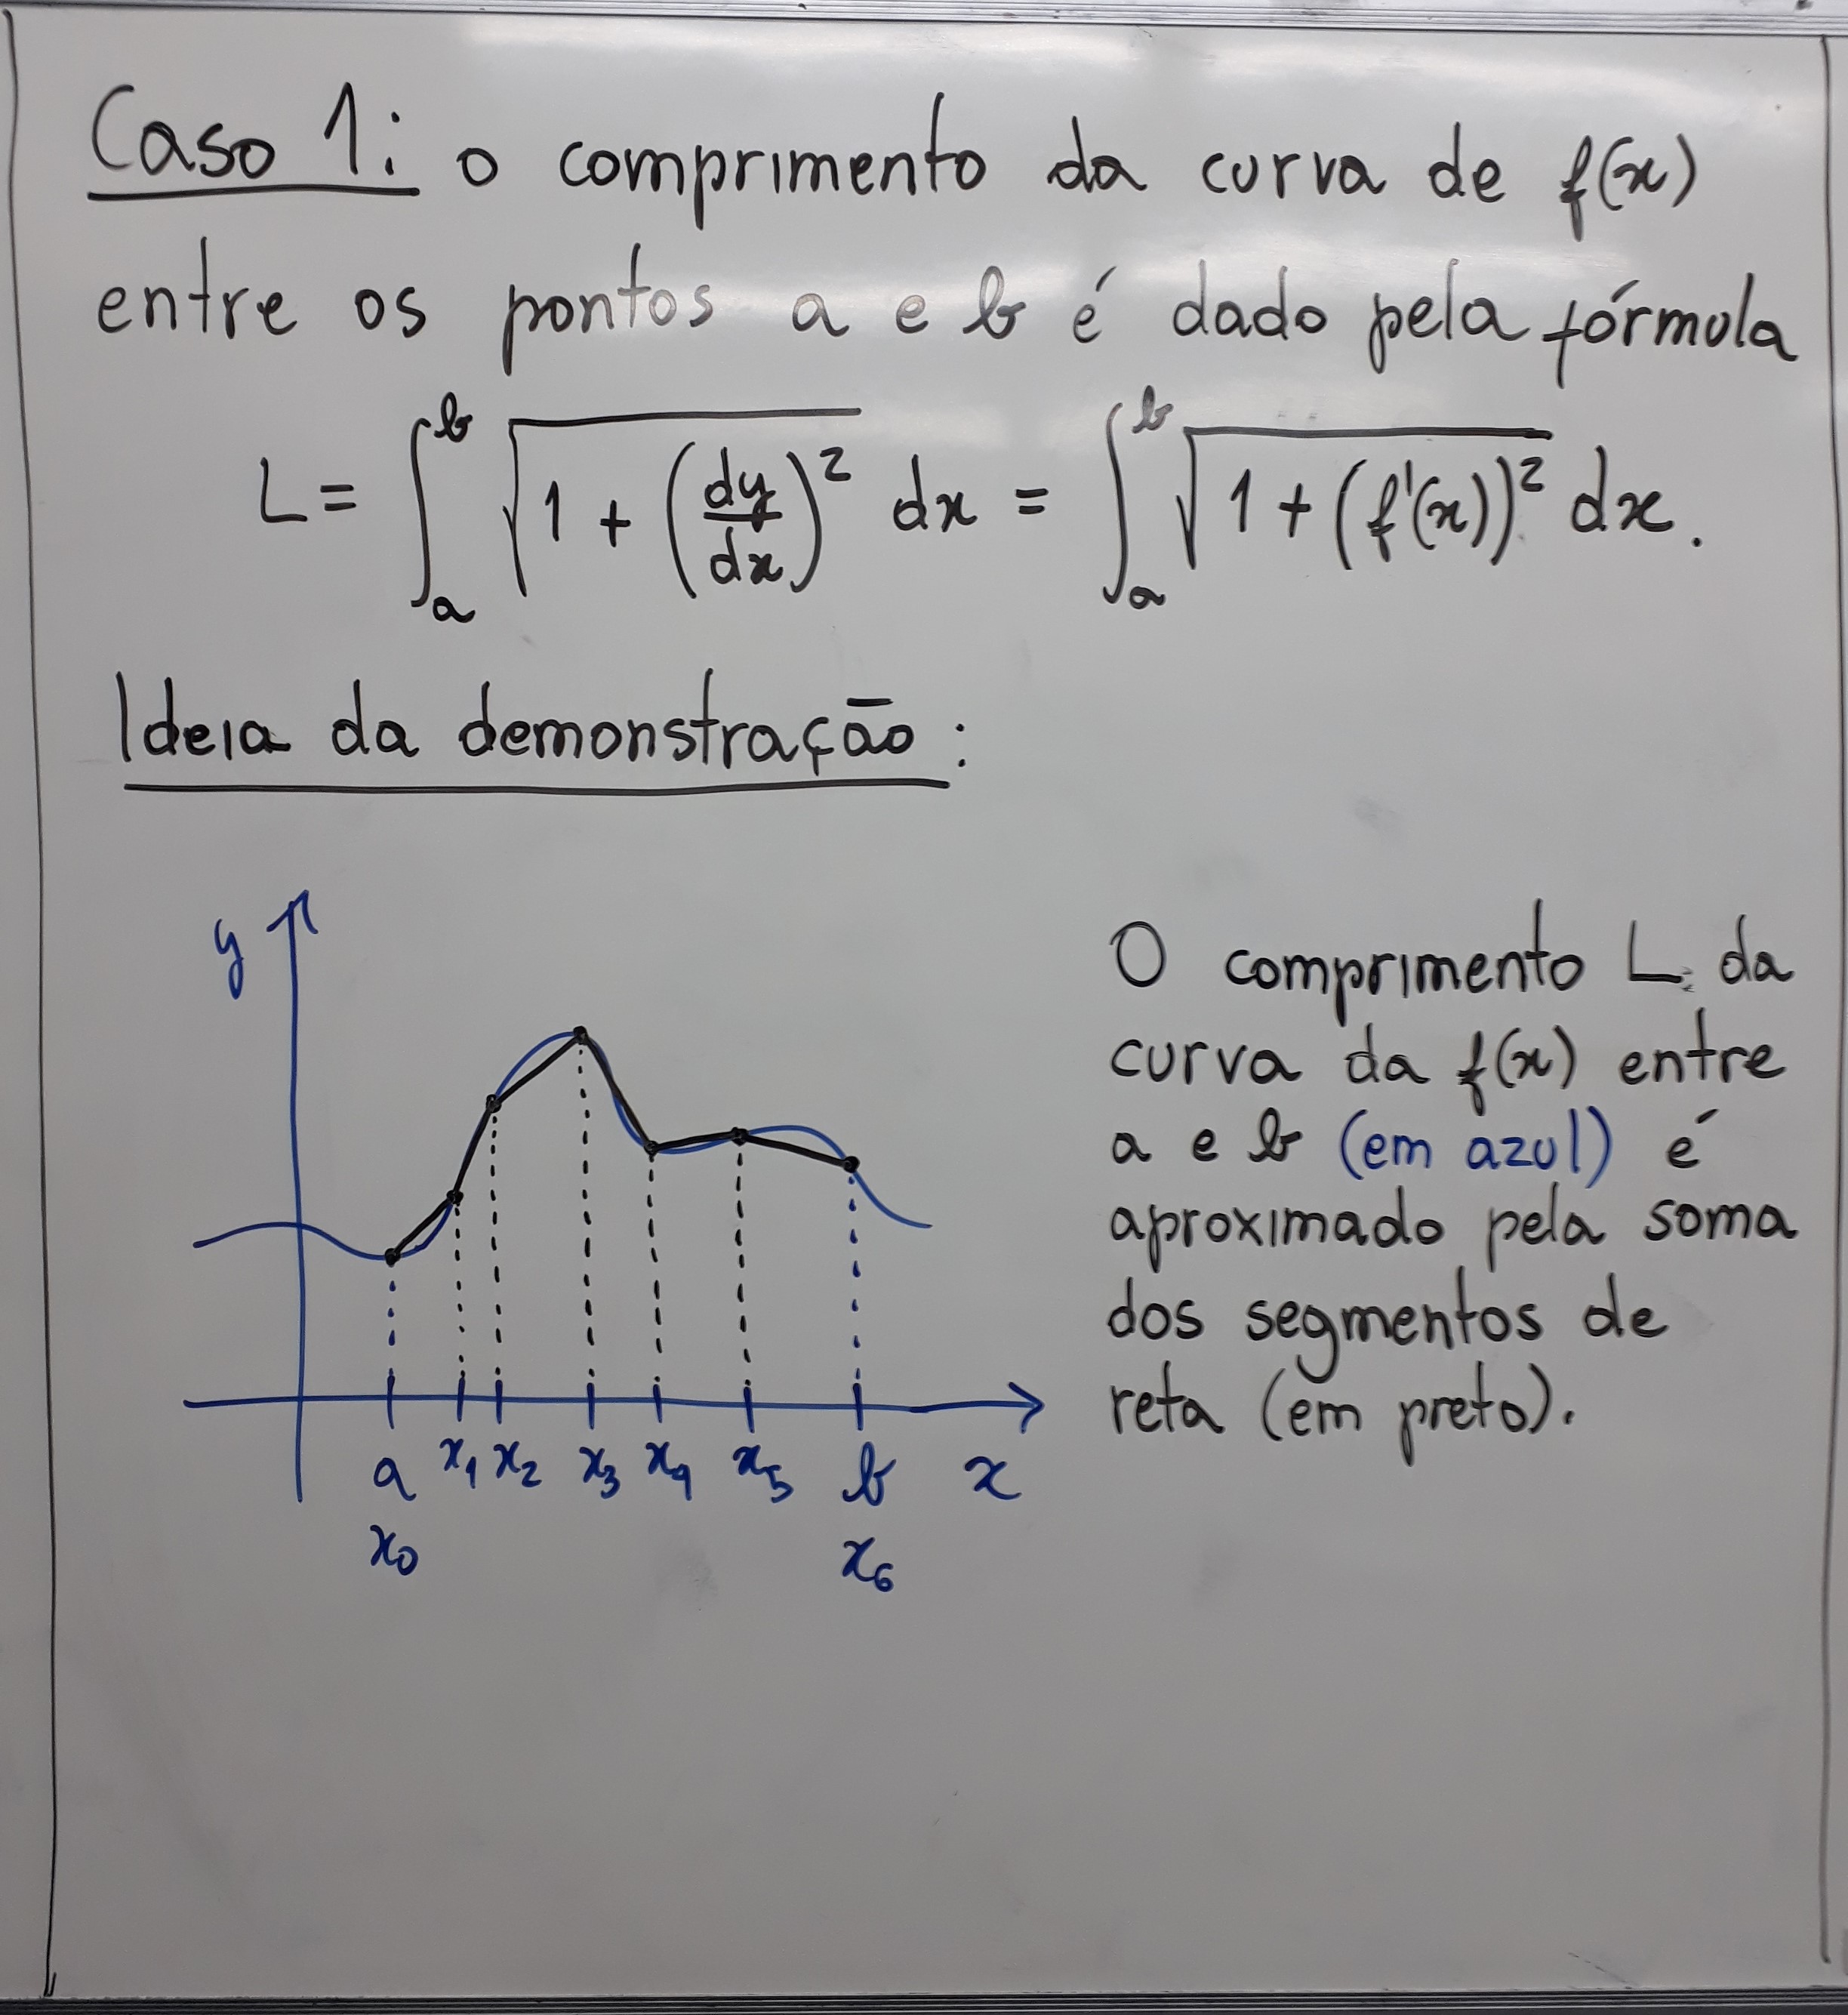 Caso 1: o comprimento da curva de f(x)
entre os pontos a e b é dado pela fórmula
L = ∫_a^b √(1 + (dy/dx)²) dx = ∫_a^b √(1 + (f'(x))²) dx.
Ideia da demonstração:
y
O comprimento L da
curva da f(x) entre
a e b (em azul) é
aproximado pela soma
dos segmentos de
reta (em preto).
a x₁ x₂ x₃ x₄ x₅ b x
x₀ x₆